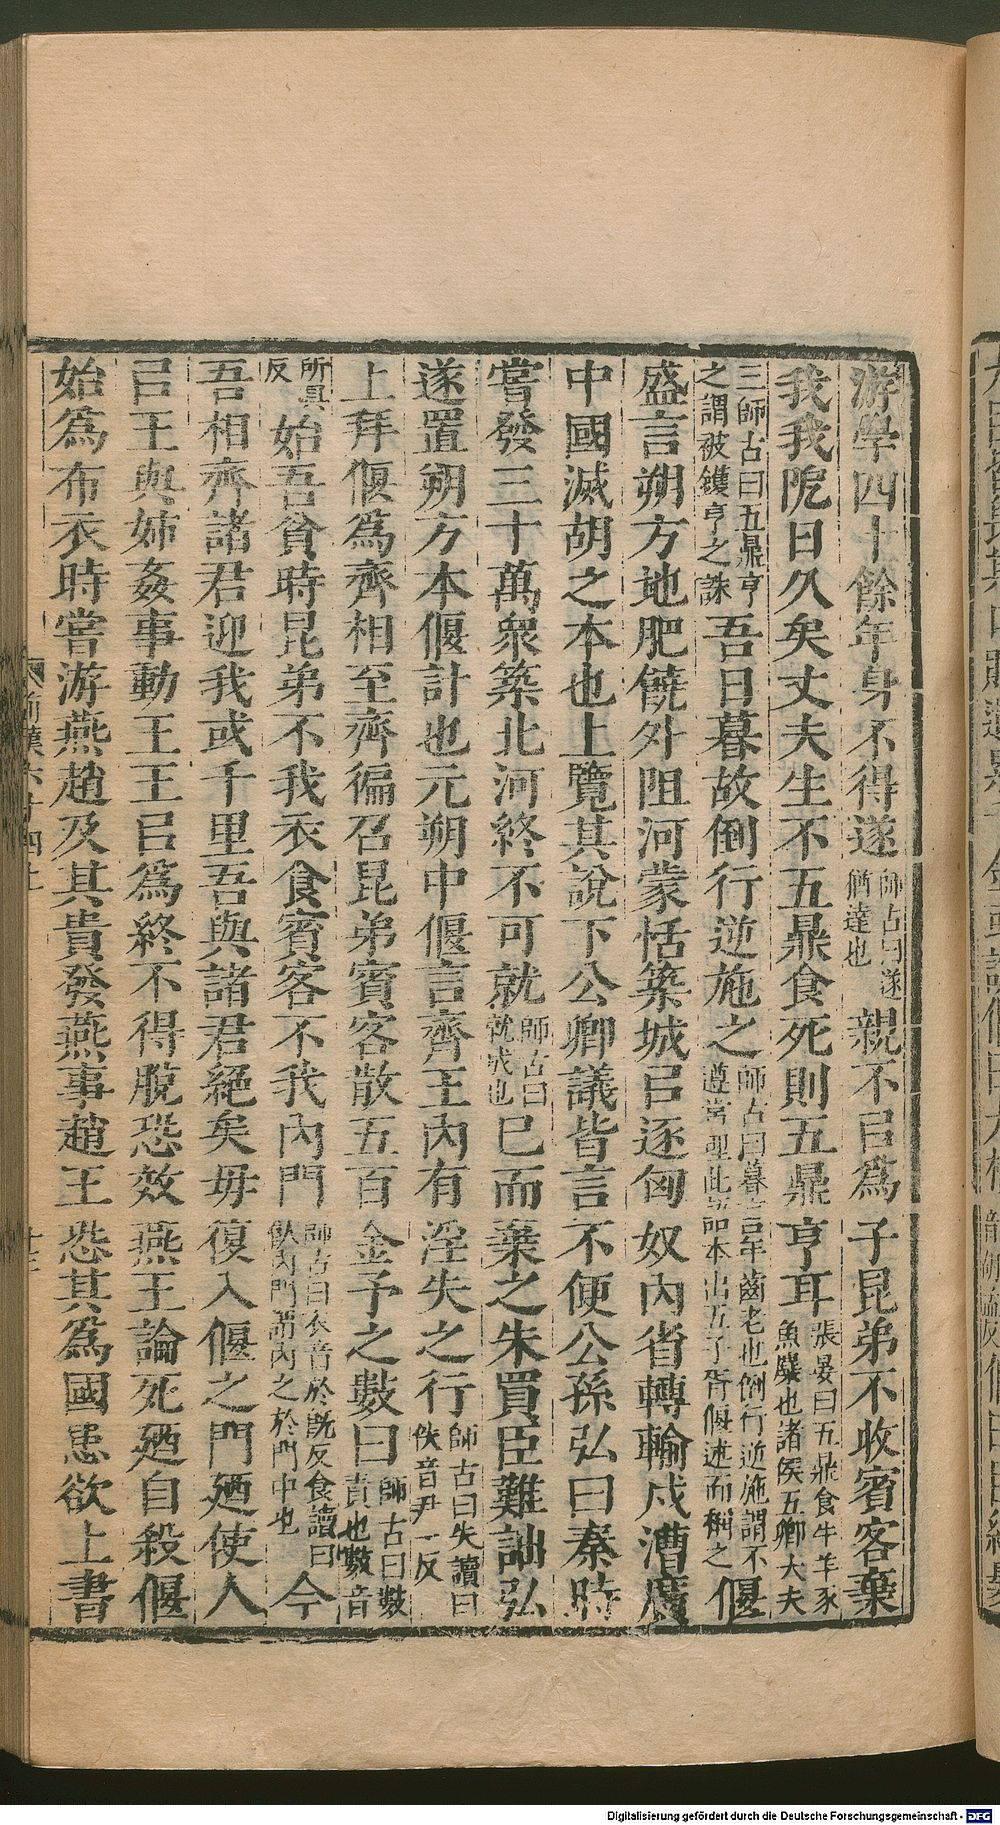 游學四十餘年身不得遂師古曰遂猶達也親不㠯爲子昆弟不收賓客棄
我我阸日久矣丈夫生不五鼎食死則五鼎亨耳張晏曰五鼎食牛羊豕魚麋也諸侯五卿大夫
三師古曰五鼎亨之謂被鑊亨之誅吾日暮故倒行逆施之師古曰暮言年齒老也倒行逆施謂不遵常理此語本出五子胥偃述而稱之偃
盛言朔方地肥饒外阻河蒙恬築城㠯逐匈奴內省轉輸戍漕廣
中國滅胡之本也上覽其說下公卿議皆言不便公孫弘曰秦時
嘗發三十萬衆築北河終不可就師古曰就成也已而棄之朱買臣難詘弘
遂置朔方本偃計也元朔中偃言齊王內有淫失之行師古曰失讀曰佚音尹一反
上拜偃爲齊相至齊徧召昆弟賓客散五百金予之數曰師古曰數責也數音
所具反始吾貧時昆弟不我衣食賓客不我內門師古曰衣音於既反食讀曰飤內門謂內之於門中也今
吾相齊諸君迎我或千里吾與諸君絕矣毋復入偃之門廼使人
㠯王與姊姦事動王王㠯爲終不得脫恐效燕王論死廼自殺偃
始爲布衣時嘗游燕趙及其貴發燕事趙王恐其爲國患欲上書
前漢六十四上
Digitalisierung gefördert durch die Deutsche Forschungsgemeinschaft - DFG